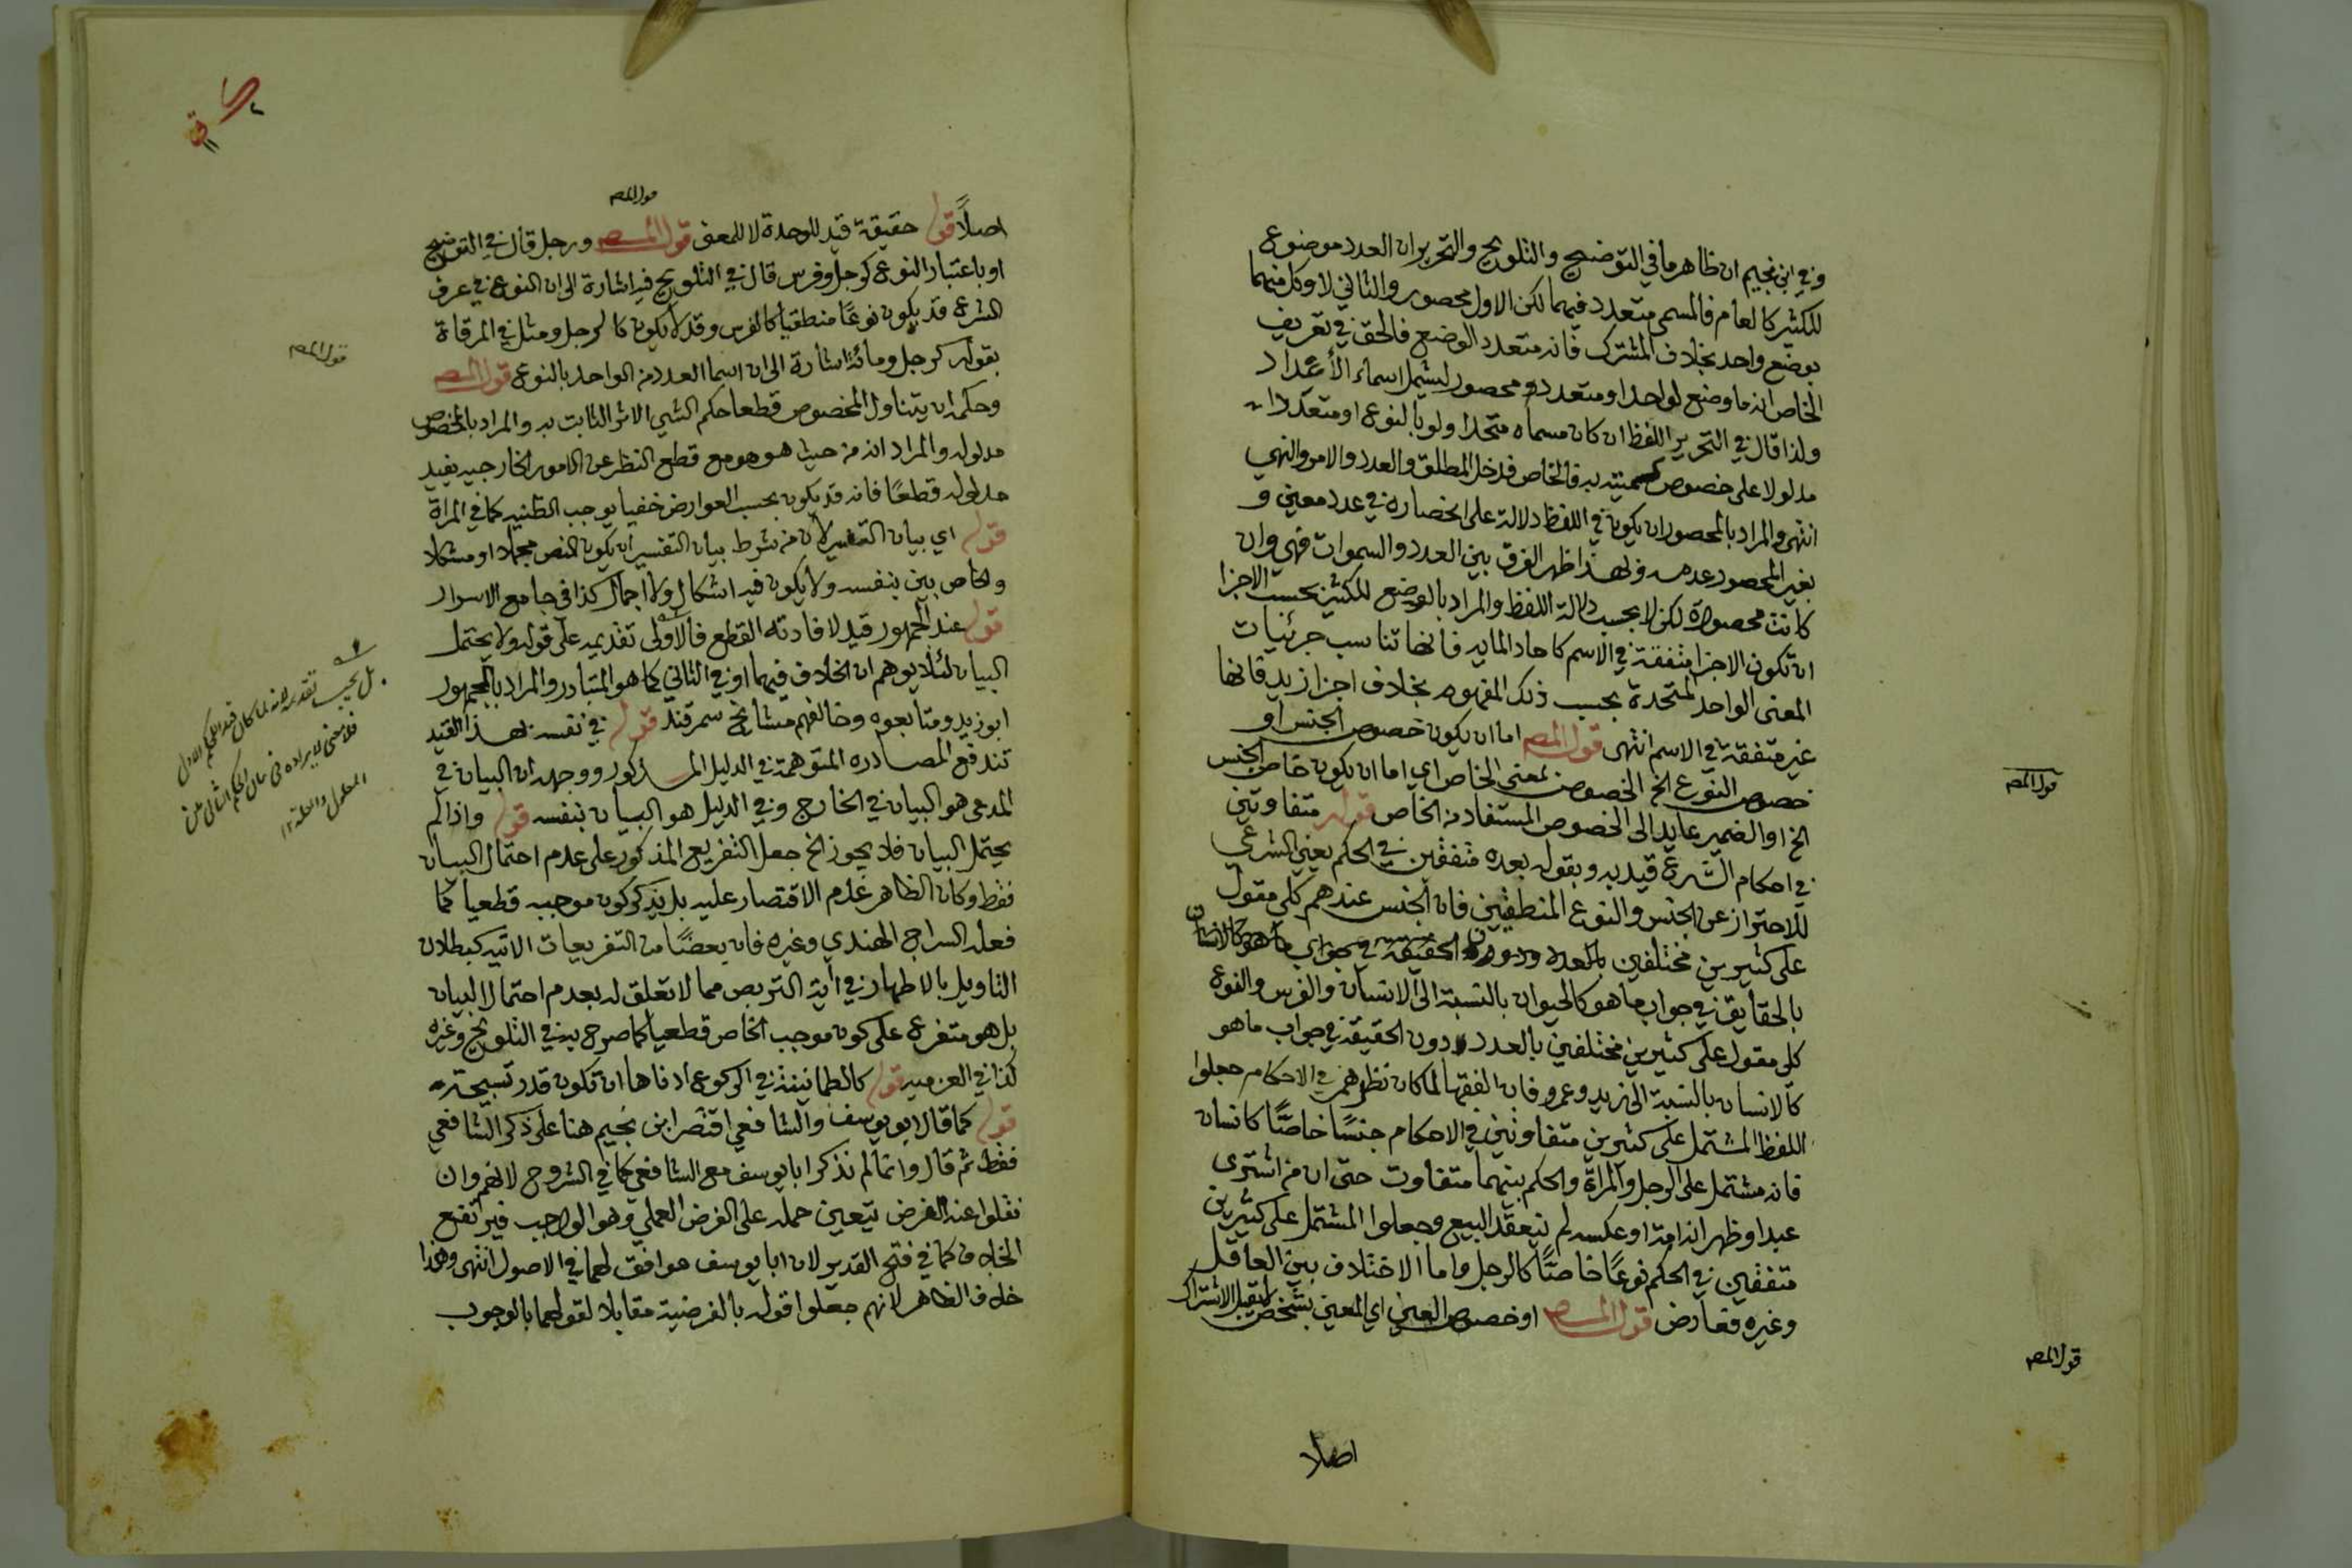 وفي ابن نجيم ان ظاهر ما في التوضيح والتلويح والتحرير ان العدد موضوع
للكثير كالعام فالمسمى متعدد فيهما لكن الاول محصور والثاني لا وكل منهما
بوضع واحد بخلاف المشترك فانه متعدد الوضع فالحق في تعريف
الخاص انه ما وضع لواحد او متعدد محصور ليشمل اسماء الأعداد
ولذا قال في التحرير اللفظ ان كان مسماه متحدا ولو بالنوع او متعددا
مدلولا على خصوص كميته به فالخاص فدخل المطلق والعدد والامر والنهي
انتهى والمراد بالمحصور ان يكون في اللفظ دلالة على انحصاره في عدد معين و
بغير المحصور عدمه وبهذا ظهر الفرق بين العدد والسموات فهي وان
كانت محصورة لكن لا بحسب دلالة اللفظ والمراد بالوضع للكثير بحسب الاجزا
ان تكون الاجزا متفقة في الاسم كاحاد المايه فانها تناسب جزئيات
المعنى الواحد المتحدة بحسب ذلك المفهوم بخلاف اجزا زيد فانها
غير متفقة في الاسم انتهى قول المص اما ان يكون خصوص الجنس او
خصوص النوع الخ الخصوص بمعنى الخاص اي اما ان يكون خاص الجنس
الخ او الضمير عايد الى الخصوص المستفاد من الخاص قوله متفاوتين
في احكام الشرع قيد به وبقوله بعده متفقين في الحكم يعني الشرعي
للاحتراز عن الجنس والنوع المنطقيين فان الجنس عندهم كلي مقول
على كثيرين مختلفين بالعدد ودون الحقيقة في جواب ما هو كالانسان
بالحقايق في جواب ما هو كالحيوان بالنسبة الى الانسان والفرس والنوع
كلي مقول على كثيرين مختلفين بالعدد دون الحقيقة في جواب ما هو
كالانسان بالنسبة الى زيد وعمرو فان الفقها لما كان نظرهم في الاحكام جعلوا
اللفظ المشتمل على كثيرين متفاوتين في الاحكام جنسًا خاصًّا كانسان
فانه مشتمل على الرجل والمراة والحكم بينهما متفاوت حتى ان من اشترى
عبدا وظهر انه امة او عكسه لم ينعقد البيع وجعلوا المشتمل على كثيرين
متفقين في الحكم نوعًا خاصًّا كالرجل واما الاختلاف بين العاقل
وغيره فعارض قول المص او خصوص العين اي المعين بشخص لا يقبل الاشتراك
قول المص
قول المص
اصلا
قول المص
اصلًا قوله حقيقة قيد للوحدة لا للمعنى قول المص ورجل قال في التوضيح
او باعتبار النوع كرجل وفرس قال في التلويح فيه اشارة الى ان النوع في عرف
الشرع قد يكون نوعًا منطقيا كالفرس وقد لا يكون كالرجل ومثل في المرقاة
بقوله كرجل ومائة اشارة الى ان اسما العدد من الواحد بالنوع قول المص
وحكمه ان يتناول المخصوص قطعا حكم الشي الاثر الثابت به والمراد بالمخصوص
مدلوله والمراد انه من حيث هو هو مع قطع النظر عن الامور الخارجيه يفيد
مدلوله قطعًا فانه قد يكون بحسب العوارض خفيا يوجب الظنيه كما في المراة
قوله اي بيان التفسير لان من شرط بيان التفسير ان يكون النص مجملا او مشكلا
والخاص بين بنفسه ولا يكون فيه اشكال ولا اجمال كذا في جامع الاسرار
قوله عند الجمهور قيد لافادته القطع فالاولى تقديمه على قوله ولا يحتمل
البيان لئلا يوهم ان الخلاف فيهما او في الثاني كما هو المتبادر والمراد بالجمهور
ابو زيد ومتابعوه وخالفهم مشايخ سمرقند قوله في نفسه بهذا القيد
تندفع المصادره المتوهمة في الدليل المذكور ووجهه ان البيان في
المدعى هو البيان في الخارج وفي الدليل هو البيان بنفسه قوله واذا لم
يحتمل البيان فلا يجوز الخ جعل التفريع المذكور على عدم احتمال البيان
فقط وكان الظاهر عدم الاقتصار عليه بل يذكر كون موجبه قطعيا كما
فعله السراج الهندي وغيره فان بعضًا من التفريعات الاتيه كبطلان
التاويل بالاطهار في اية التربص مما لا تعلق له بعدم احتمال البيان
بل هو متفرع على كون موجب الخاص قطعيا كما صرح به في التلويح وغيره
كذا في العزميه قوله كالطمانينة في الركوع ادناها ان تكون قدر تسبيحة
قوله كما قال ابو يوسف والشافعي اقتصر ابن نجيم هنا على ذكر الشافعي
فقط ثم قال وانما لم نذكر ابا يوسف مع الشافعي كما في الشروح لانهم وان
نقلوا عنه الفرض يتعين حمله على الفرض العملي وهو الواجب فيرتفع
الخلاف كما في فتح القدير لان ابا يوسف موافق لهما في الاصول انتهى وهذا
خلاف الظاهر لانهم جعلوا قوله بالفرضية مقابلا لقولهما بالوجوب
قول المص
بل يجب تقديمه لانه لما كان قيد الحكم الاول
فلا معنى لايراده في بيان الحكم الثاني